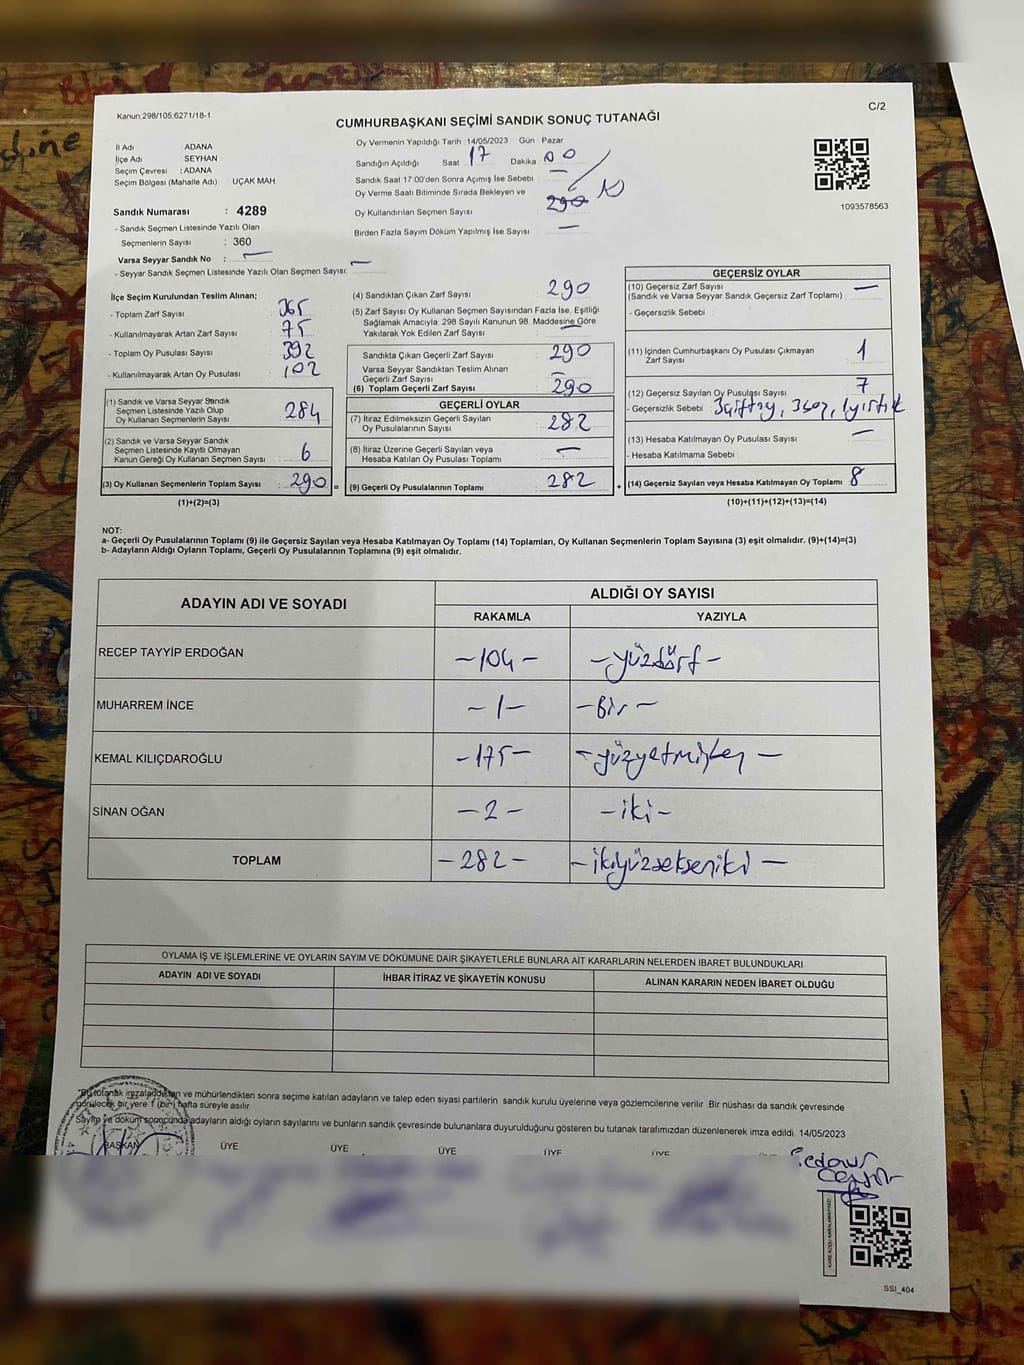 Kanun:298/105;6271/18-1
C/2
CUMHURBAŞKANI SEÇİMİ SANDIK SONUÇ TUTANAĞI
İl Adı ADANA
İlçe Adı SEYHAN
Seçim Çevresi : ADANA
Seçim Bölgesi (Mahalle Adı) UÇAK MAH
Sandık Numarası : 4289
- Sandık Seçmen Listesinde Yazılı Olan
Seçmenlerin Sayısı : 360
Varsa Seyyar Sandık No : —
- Seyyar Sandık Seçmen Listesinde Yazılı Olan Seçmen Sayısı: —
Oy Vermenin Yapıldığı Tarih :14/05/2023 Gün Pazar
Sandığın Açıldığı Saat 17 Dakika 00
Sandık Saat 17:00'den Sonra Açılmış İse Sebebi : —
Oy Verme Saati Bitiminde Sırada Bekleyen ve
Oy Kullandırılan Seçmen Sayısı : 290
Birden Fazla Sayım Döküm Yapılmış İse Sayısı : —
1093578563
İlçe Seçim Kurulundan Teslim Alınan;
- Toplam Zarf Sayısı : 365
- Kullanılmayarak Artan Zarf Sayısı : 75
- Toplam Oy Pusulası Sayısı : 392
- Kullanılmayarak Artan Oy Pusulası : 102
(1) Sandık ve Varsa Seyyar Sandık
Seçmen Listesinde Yazılı Olup
Oy Kullanan Seçmenlerin Sayısı : 284
(2) Sandık ve Varsa Seyyar Sandık
Seçmen Listesinde Kayıtlı Olmayan
Kanun Gereği Oy Kullanan Seçmen Sayısı : 6
(3) Oy Kullanan Seçmenlerin Toplam Sayısı : 290 =
(1)+(2)=(3)
(4) Sandıktan Çıkan Zarf Sayısı : 290
(5) Zarf Sayısı Oy Kullanan Seçmen Sayısından Fazla İse, Eşitliği
Sağlamak Amacıyla; 298 Sayılı Kanunun 98. Maddesine Göre
Yakılarak Yok Edilen Zarf Sayısı : —
Sandıkta Çıkan Geçerli Zarf Sayısı : 290
Varsa Seyyar Sandıktan Teslim Alınan
Geçerli Zarf Sayısı : —
(6) Toplam Geçerli Zarf Sayısı : 290
GEÇERLİ OYLAR
(7) İtiraz Edilmeksizin Geçerli Sayılan
Oy Pusulalarının Sayısı : 282
(8) İtiraz Üzerine Geçerli Sayılan veya
Hesaba Katılan Oy Pusulası Toplamı : —
(9) Geçerli Oy Pusulalarının Toplamı : 282 +
GEÇERSİZ OYLAR
(10) Geçersiz Zarf Sayısı —
(Sandık ve Varsa Seyyar Sandık Geçersiz Zarf Toplamı) :
- Geçersizlik Sebebi :
(11) İçinden Cumhurbaşkanı Oy Pusulası Çıkmayan
Zarf Sayısı : 1
(12) Geçersiz Sayılan Oy Pusulası Sayısı : 7
- Geçersizlik Sebebi :
(13) Hesaba Katılmayan Oy Pusulası Sayısı : —
- Hesaba Katılmama Sebebi :
(14) Geçersiz Sayılan veya Hesaba Katılmayan Oy Toplamı : 8
(10)+(11)+(12)+(13)=(14)
NOT:
a- Geçerli Oy Pusulalarının Toplamı (9) ile Geçersiz Sayılan veya Hesaba Katılmayan Oy Toplamı (14) Toplamları, Oy Kullanan Seçmenlerin Toplam Sayısına (3) eşit olmalıdır. (9)+(14)=(3)
b- Adayların Aldığı Oyların Toplamı, Geçerli Oy Pusulalarının Toplamına (9) eşit olmalıdır.
ADAYIN ADI VE SOYADI ALDIĞI OY SAYISI
RAKAMLA YAZIYLA
RECEP TAYYİP ERDOĞAN -104- -yüzdört-
MUHARREM İNCE -1- -bir-
KEMAL KILIÇDAROĞLU -175- -yüzyetmişbeş-
SİNAN OĞAN -2- -iki-
TOPLAM -282- -ikiyüzsekseniki-
OYLAMA İŞ VE İŞLEMLERİNE VE OYLARIN SAYIM VE DÖKÜMÜNE DAİR ŞİKAYETLERLE BUNLARA AİT KARARLARIN NELERDEN İBARET BULUNDUKLARI
ADAYIN ADI VE SOYADI İHBAR İTİRAZ VE ŞİKAYETİN KONUSU ALINAN KARARIN NEDEN İBARET OLDUĞU
*Bu tutanak imzalandıktan ve mühürlendikten sonra seçime katılan adayların ve talep eden siyasi partilerin sandık kurulu üyelerine veya gözlemcilerine verilir. Bir nüshası da sandık çevresinde
görülecek bir yere 1 (bir) hafta süreyle asılır.
Sayım ve döküm sonucunda adayların aldığı oyların sayılarını ve bunların sandık çevresinde bulunanlara duyurulduğunu gösteren bu tutanak tarafımızdan düzenlenerek imza edildi. 14/05/2023
BAŞKAN ÜYE ÜYE ÜYE ÜYE ÜYE
KARE KODU KARALAMAYINIZ!
SSI_404